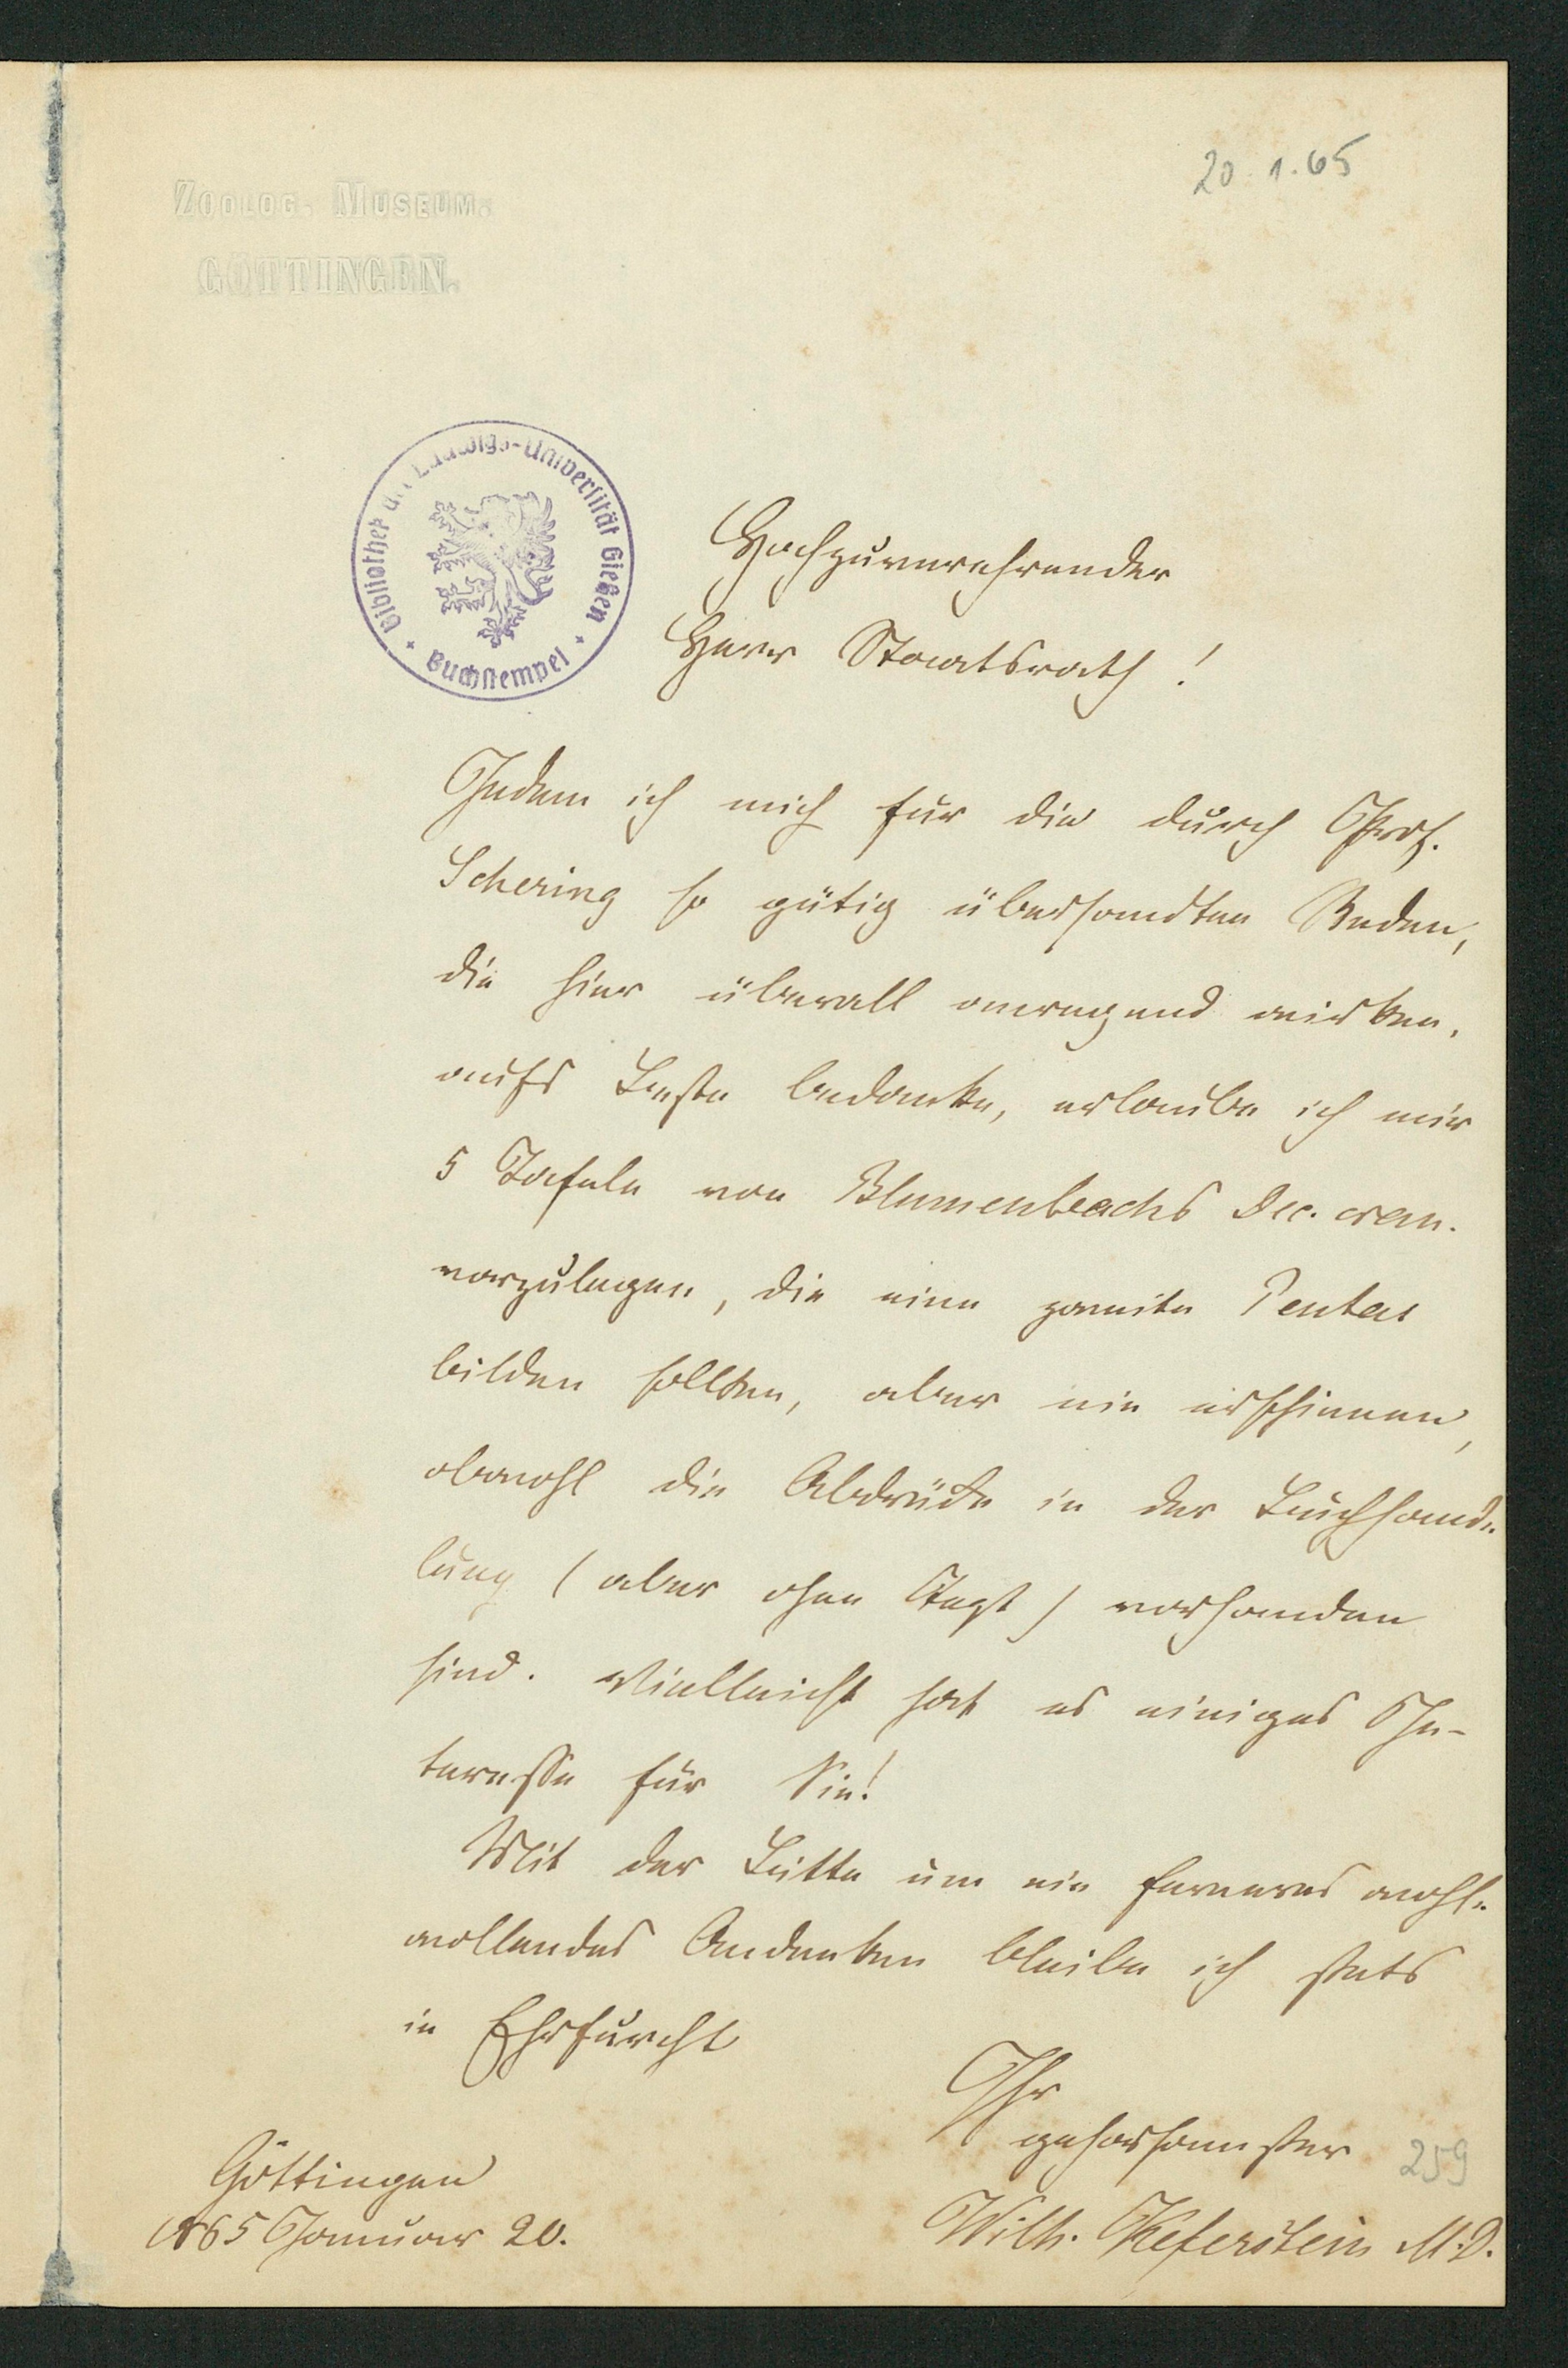 20.1.65
ZOOLOG. MUSEUM.
GÖTTINGEN.
Bibliothek der Ludwigs-Universität Gießen
Buchstempel
Hochzuverehrender
Herr Staatsrath!
Indem ich mich für die durch Prof.
Schering so gütig übersandten Reden,
die hier überall anregend wirken,
aufs Beste bedanke, erlaube ich mir
5 Tafeln von Blumenbachs Dec. cran.
vorzulegen, die eine zweite Pentas
bilden sollten, aber nie erschienen,
obwohl die Abdrücke in der Buchhand-
lung (aber ohne Text) vorhanden
sind. Vielleicht hat es einiges In-
teresse für Sie!
Mit der Bitte um ein ferneres wohl-
wollendes Andenken bleibe ich stets
in Ehrfurcht
Ihr
gehorsamster
259
Wilh. Keferstein M.D.
Göttingen
1865 Januar 20.